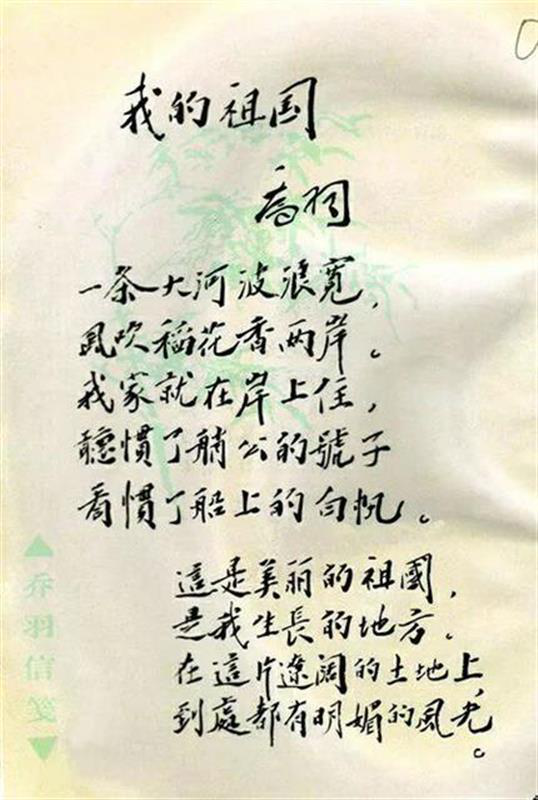 我的祖国
乔羽
一条大河波浪寬，
風吹稻花香两岸。
我家就在岸上住，
聽慣了艄公的號子
看慣了船上的白帆。
這是美丽的祖國，
是我生長的地方。
在這片遼阔的土地上，
到處都有明媚的風光。
乔羽信笺